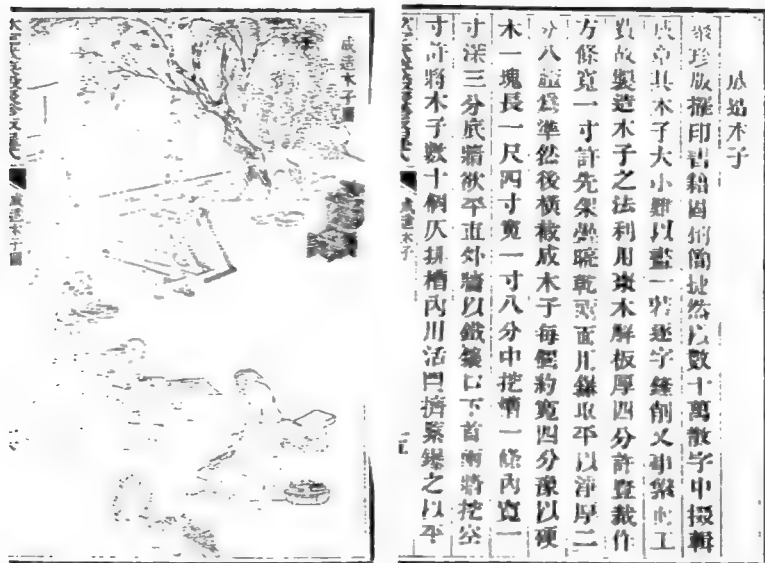 成造木子
聚珍版擺印書籍固簡捷然以數十萬散字中掇輯
成章其木子大小難以畫一若逐字鏇削又事繁工
費故製造木子之法利用棗木解板厚四分許豎裁作
方條寬一寸許先架疊晾乾兩面用鏇取平以淨厚二
分八釐爲準然後橫截成木子每個約寬四分豫以硬
木一塊長一尺四寸寬一寸八分中挖槽一條內寬一
寸深三分底牆欲平直外牆以鐵鑲口下首兩牆挖空
寸許將木子數十個仄排槽內用活閂擠緊鏇之以平
成造木子
成造木子圖
成造木子圖